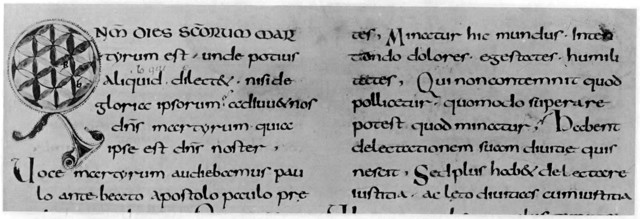 QNM DIES SCORUM MAR
tyrum est · unde potius
Aliquid · dilect& · niside
gloriae ipsorum · adiuu&nos
dns martyrum · quia
ipse est dns noster,
Uoce martyrum audiebamus pau
lo ante · beato apostolo paulo pre
tes, Minatur hic mundus · Inten
tando dolores · egestates · humili
tates, Qui non contemnit quod
pollicetur · quomodo superare
potest quod minatur, Habent
delectationem suam diuitie quis
nescit, Sed plus hab& delectare
iustitia · ac diuitias cum iustitia